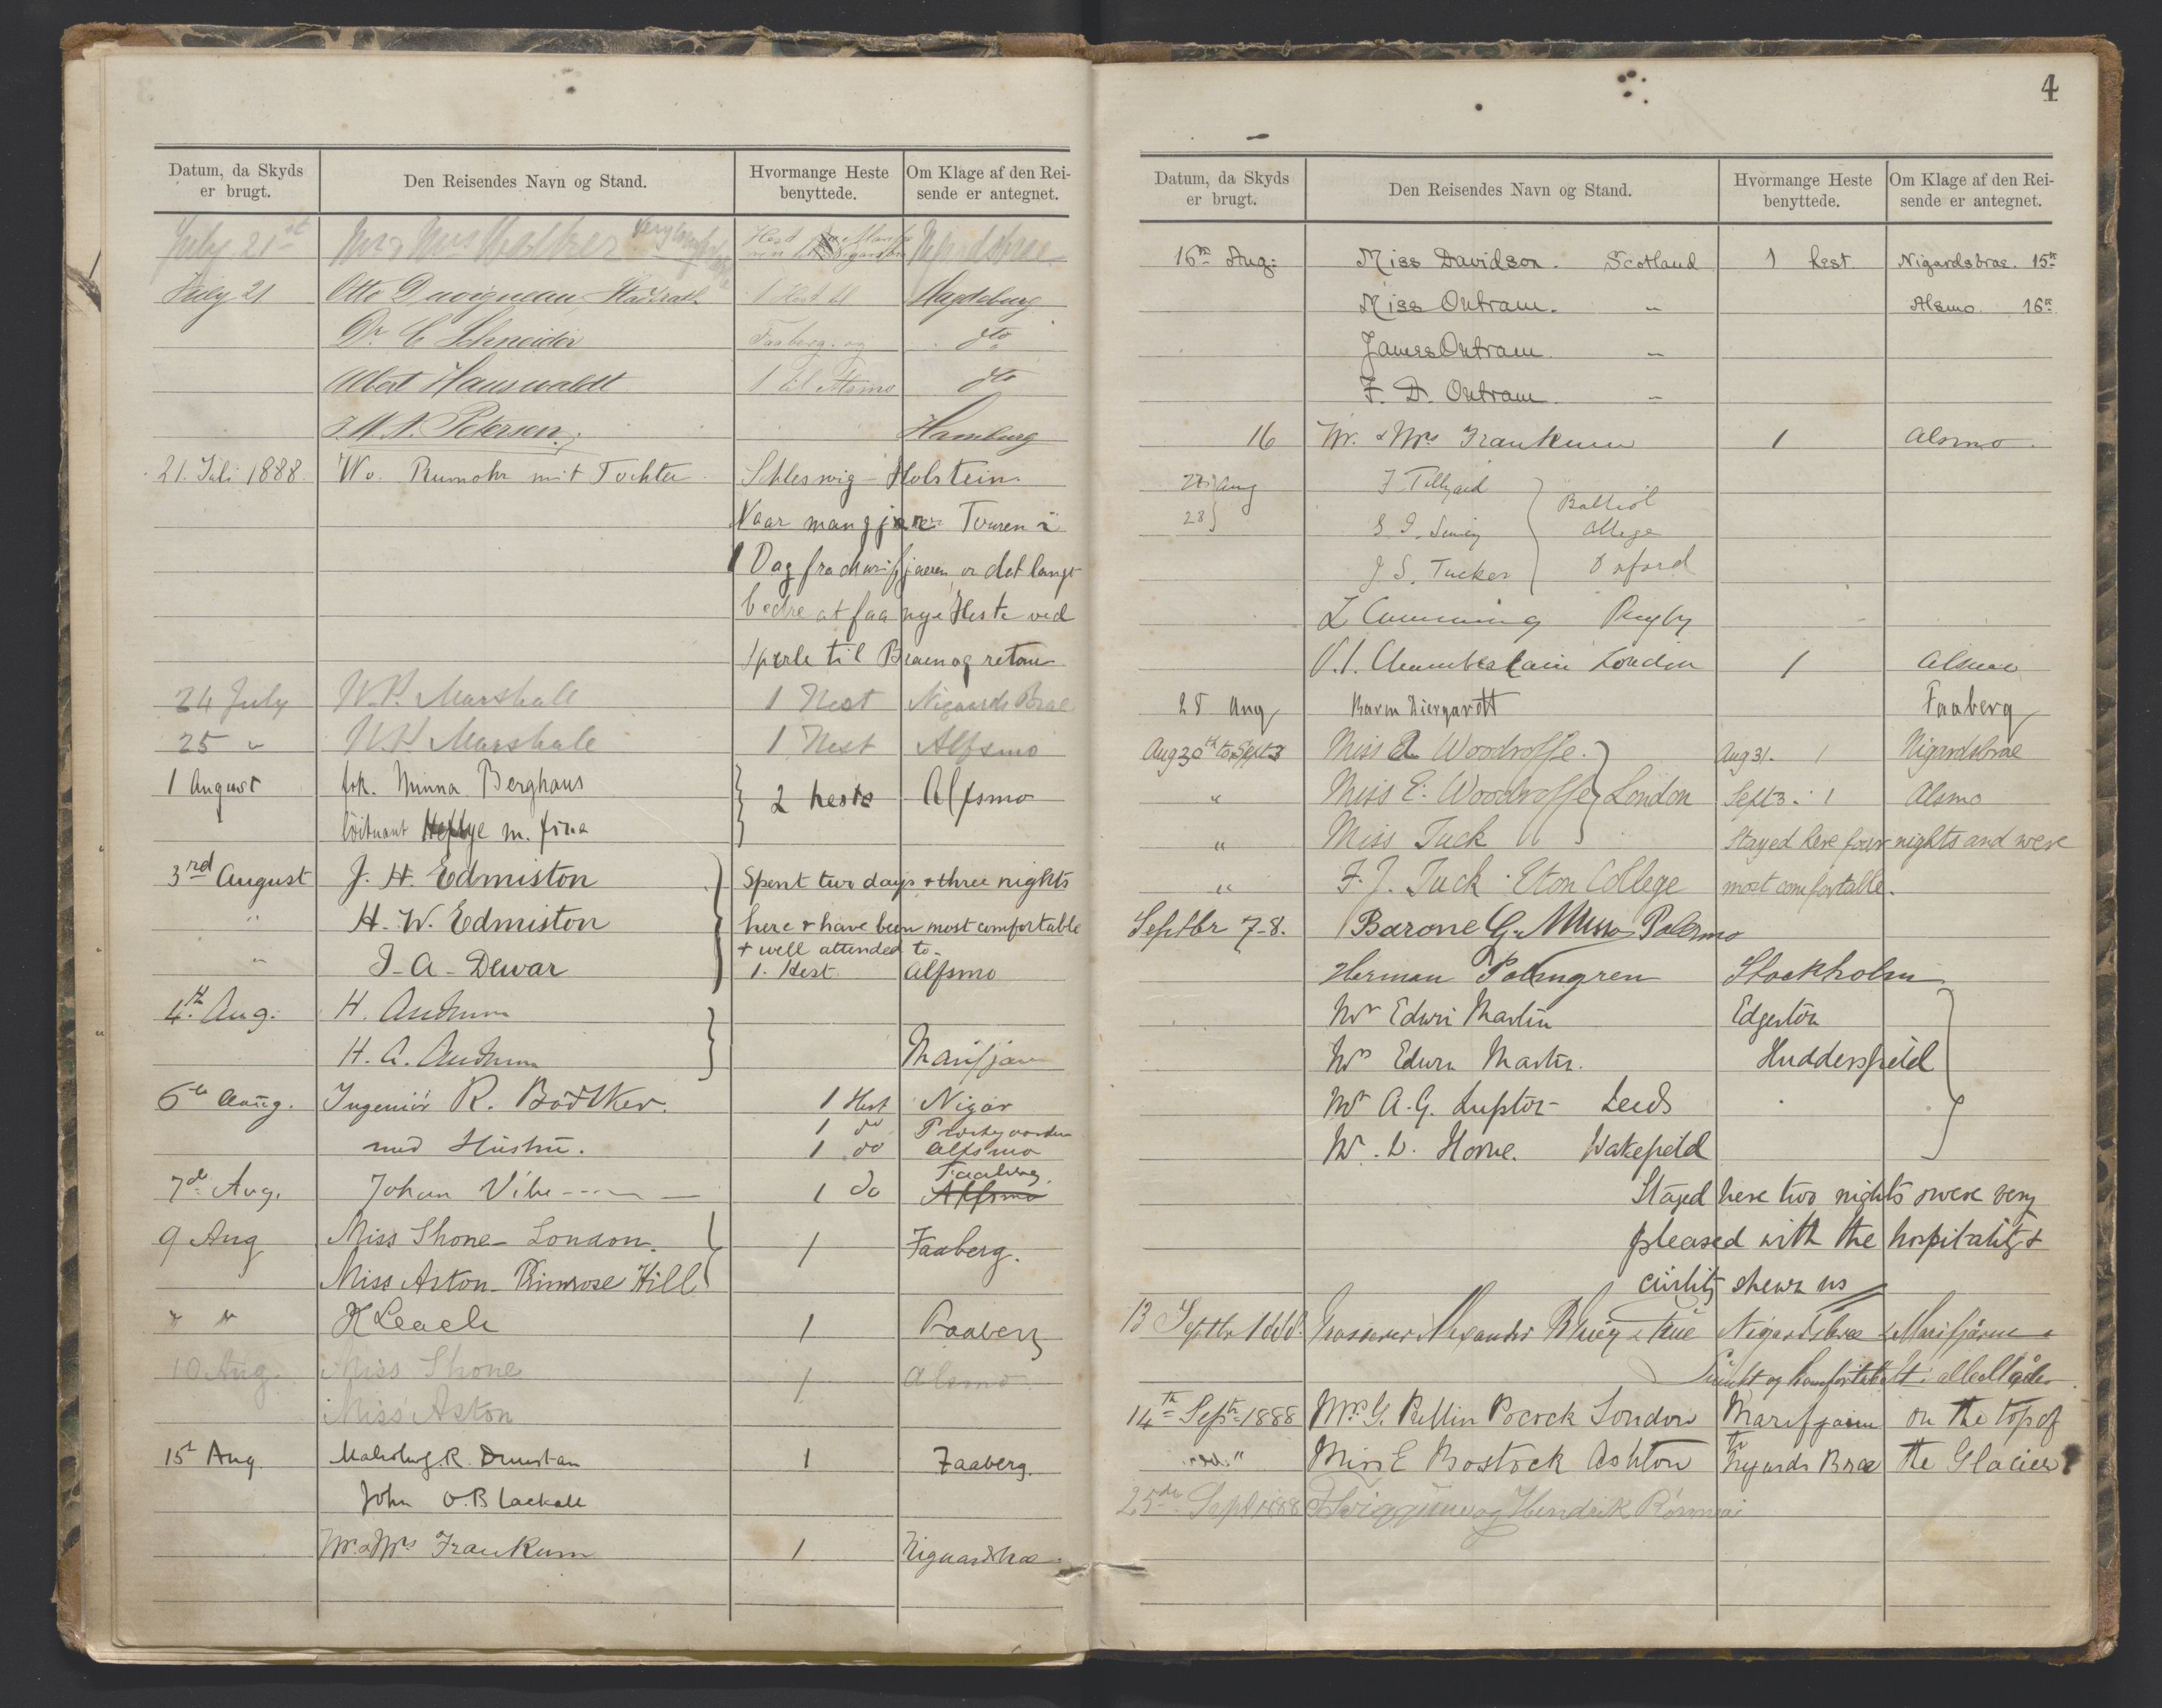 Datum, da Skyds er brugt. Den Reisendes Navn og Stand. Hvormange Heste benyttede. Om Klage af den Reisende er antegnet.
July 21st Mr & Mrs
July 21 Otto Duvigneau, Stadtrath 1 Hest til Magdeburg
Dr. C Schneider Faaberg. og dto
Albert Hauswaldt 1 til Alsmo dto
Petersen Hamburg
21. Juli 1888. Rumohr mit Tochter Schleswig-Holstein.
Naar man gjør Touren i
1 Dag fra Marifjæren, er det langt
bedre at faa nye Heste ved
Sperle til Bræen og retour
24 July W.P. Marshall 1 Hest Nigaards Brae
25 " W.P. Marshall 1 Hest Alfsmo
1 August frk. Minna Berghaus 2 heste Alfsmo
løitnant Heftye m. frue
3rd August J. H. Edmiston Spent two days & three nights
" H. W. Edmiston here & have been most comfortable
& well attended to-
" J-A-Dewar 1. Hest. Alfsmo
4th Aug. H.
H. A. Marifjæren
6te Aug. Ingeniør R. Bødtker. 1 Hest Nigar
1 do
med Hustru. 1 do Alfsmo
Faaberg.
7de Aug. Johan Vibe 1 do Alfsmo
9 Aug Miss Shone - London. 1 Faaberg.
Miss Aston - Primrose Hill
" " K Leach 1 Faaberg
10 Aug. Miss Shone 1 Alsmo
Miss Aston
15t Aug R. Dunstan 1 Faaberg.
John O. Blackall
Mr. & Mrs Frankum 1 Nigaardsbrae.
4
Datum, da Skyds er brugt. Den Reisendes Navn og Stand. Hvormange Heste benyttede. Om Klage af den Reisende er antegnet.
16th Aug: Miss Davidson. Scotland 1 hest. Nigardsbrae. 15th
Miss Outram. " Alsmo. 16th
James Outram. "
F. D. Outram. "
16 Mr. & Mrs Frankum 1 Alsmo.
27 Aug J Tillyard Balliol
28 College
J. S. Tucker Oxford
L Cumming Rugby
Chamberlain London 1 Alsmo
28 Aug Baron Diergardt Faaberg
Aug 30th to Sept 3 Miss Woodroffe. Aug 31. 1 Nigardsbrae
" Miss E. Woodroffe London Sept 3. 1 Alsmo
" Miss Tuck Stayed here four nights and were
" F. J. Tuck. Eton College most comfortable.
Septbr 7-8. Barone G. Palermo
Herman Palmgren Stockholm
Mr Edwin Martin Edgerton
Mrs Edwin Martin. Huddersfield
Mr A. G. Lupton - Leeds
Mr. D. Horne. Wakefield
Stayed here two nights & were very
pleased with the hospitality &
civility shewn us
13 Septbr 1888. Grosserer Alexander & frue Nigardsbræ & Marifjæren
Smukt og komfortabelt i alle Maader.
14th Septr 1888 Mr. G. Pullin Pocock London Marifjæren on the top of
" Miss E Bostock Ashton to Nygards Brae the Glacier
25de Sept 1888 og Hendrik